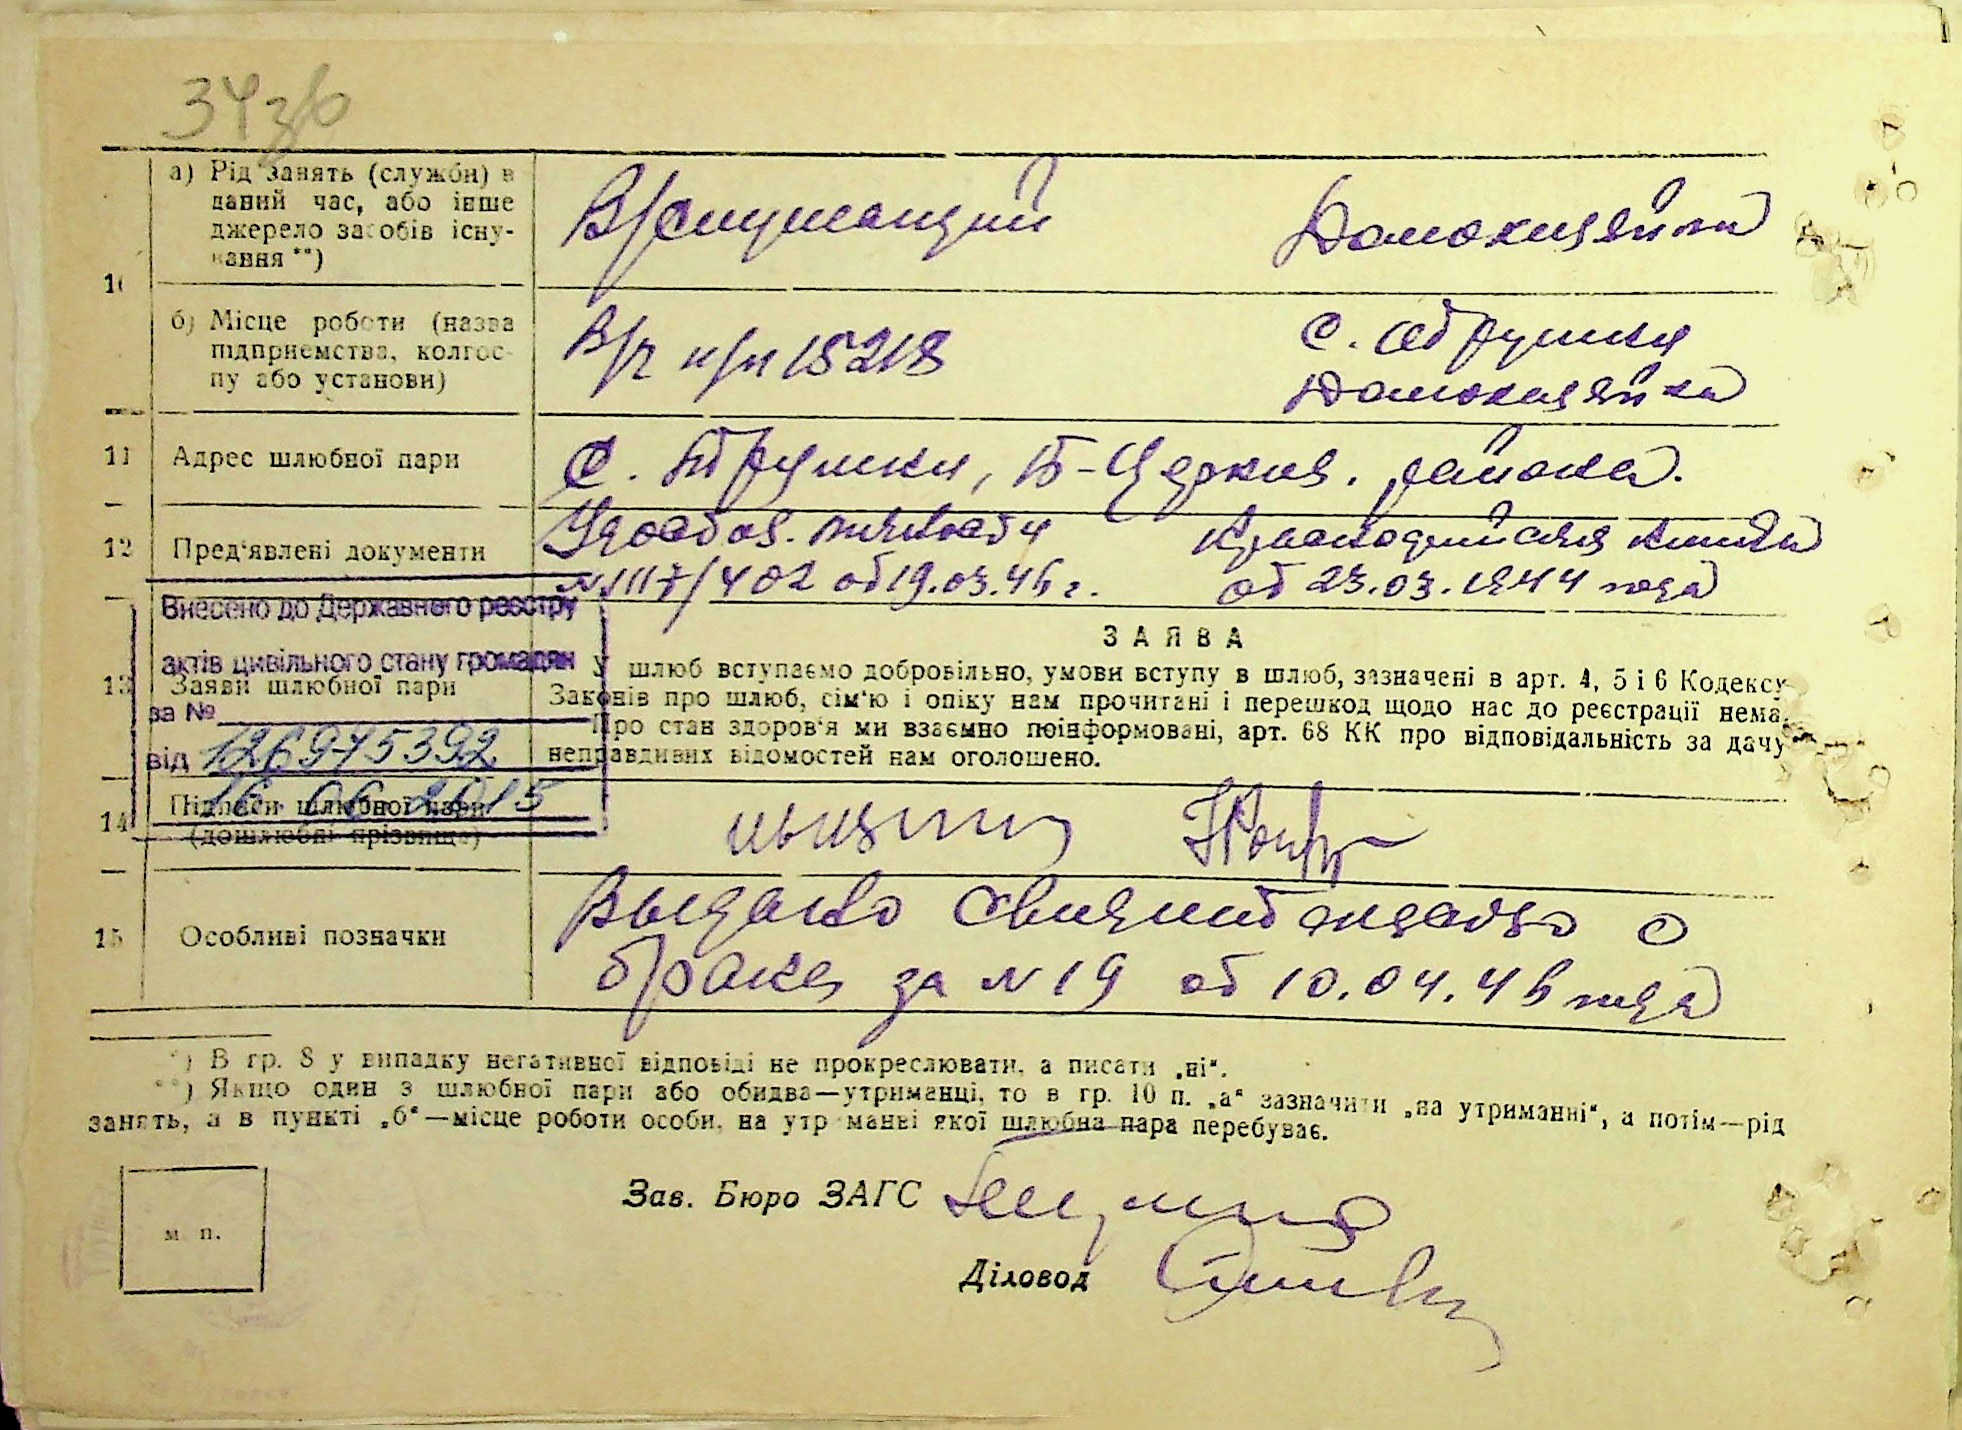 34зв
а) Рід занять (служби) в
даний час, або інше
джерело засобів існу-
вання **)
В/служащий Домохозяйка
10
б) Місце роботи (назва
підприємства, колгос-
пу або установи)
В/ч п/п 15218
с. Трушки
Домохозяйка
11 Адрес шлюбної пари
с. Трушки, Б-Церков. района.
12 Пред'явлені документи
Удостов. личности
№ 1117/402 от 19.03.46 г.
от 23.03.1944 года
Внесено до Державного реєстру
актів цивільного стану громадян
за №
від 126975392
16.06.2015
13 Заяви шлюбної пари
ЗАЯВА
У шлюб вступаємо добровільно, умови вступу в шлюб, зазначені в арт. 4, 5 і 6 Кодексу
Законів про шлюб, сім'ю і опіку нам прочитані і перешкод щодо нас до реєстрації нема.
Про стан здоров'я ми взаємно поінформовані, арт. 68 КК про відповідальність за дачу
неправдивих відомостей нам оголошено.
14 Підписи шлюбної пари
(дошлюбні прізвища)
15 Особливі позначки
Выдано свидетельство о
браке за № 19 от 10.04.46 года
*) В гр. 8 у випадку негативної відповіді не прокреслювати, а писати „ні“.
**) Якщо один з шлюбної пари або обидва—утриманці, то в гр. 10 п. „а“ зазначити „на утриманні“, а потім—рід
занять, а в пункті „б“—місце роботи особи, на утриманні якої шлюбна пара перебуває.
м. п.
Зав. Бюро ЗАГС
Діловод